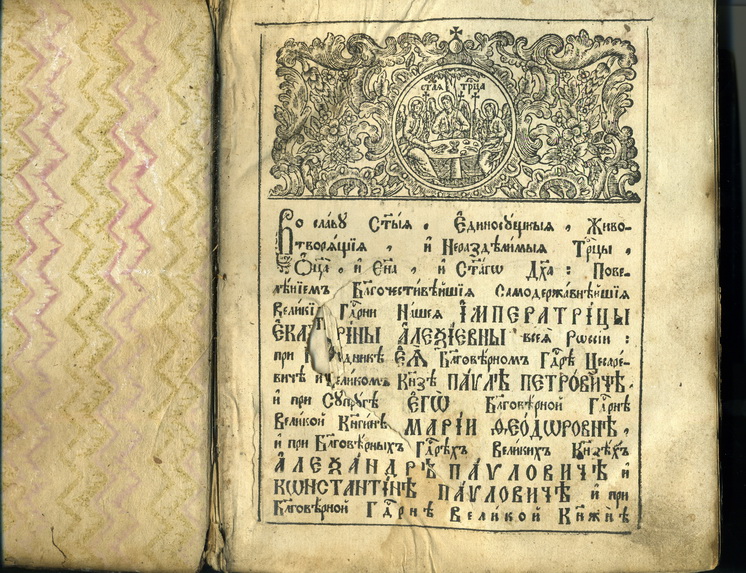 стаѧ трⷪ҇ца
Во сла́вꙋ Ст҃ы́ѧ , Е҆диносꙋ́щныѧ , Живо-
творѧ́щїѧ , и҆ Нераздѣли́мыѧ Трⷪ҇цы ,
Ѻ҆ц҃а̀ , и҆ Сн҃а , и҆ Ст҃а́гѡ Дх҃а : Пове-
лѣ́нїемъ Бл҃гочести́вѣйшїѧ Самодержа́внѣйшїѧ
Вели́кїѧ Гдⷭ҇рни На́шеѧ І҆МПЕРАТРІ́ЦЫ
Е҆КАТ РІ́НЫ А҆ЛЕѮІ́ЕВНЫ всеѧ̀ Рѡссі́и :
при дникѣ Е҆Ѧ̀ Бл҃говѣ́рномъ Гдⷭ҇рѣ Цесаре́-
вичѣ и҆ вели́комъ Кн҃зѣ ПА́ѴЛѢ ПЕТРО́ВИЧѢ ,
и҆ при Сꙋпрꙋ́гѣ Е҆ГѠ̀ Бл҃говѣ́рной Гдⷭ҇рнѣ
Вели́кой Кнѧги́нѣ МАРІ́И Ѳ҆ЕѺ́ДѠРОВНѢ ,
и҆ при Бл҃говѣ́рныхъ Гдⷭ҇рѣхъ Вели́кихъ Кн҃зѣ́хъ
А҆ЛЕѮА́НДРѢ ПА́ѴЛОВИЧѢ и҆
КѠНСТАНТІ́НѢ ПА́ѴЛОВИЧѢ и҆ при
Бл҃говѣ́рной Гдⷭ҇рнѣ Вели́кой Кн҃жнѣ̀